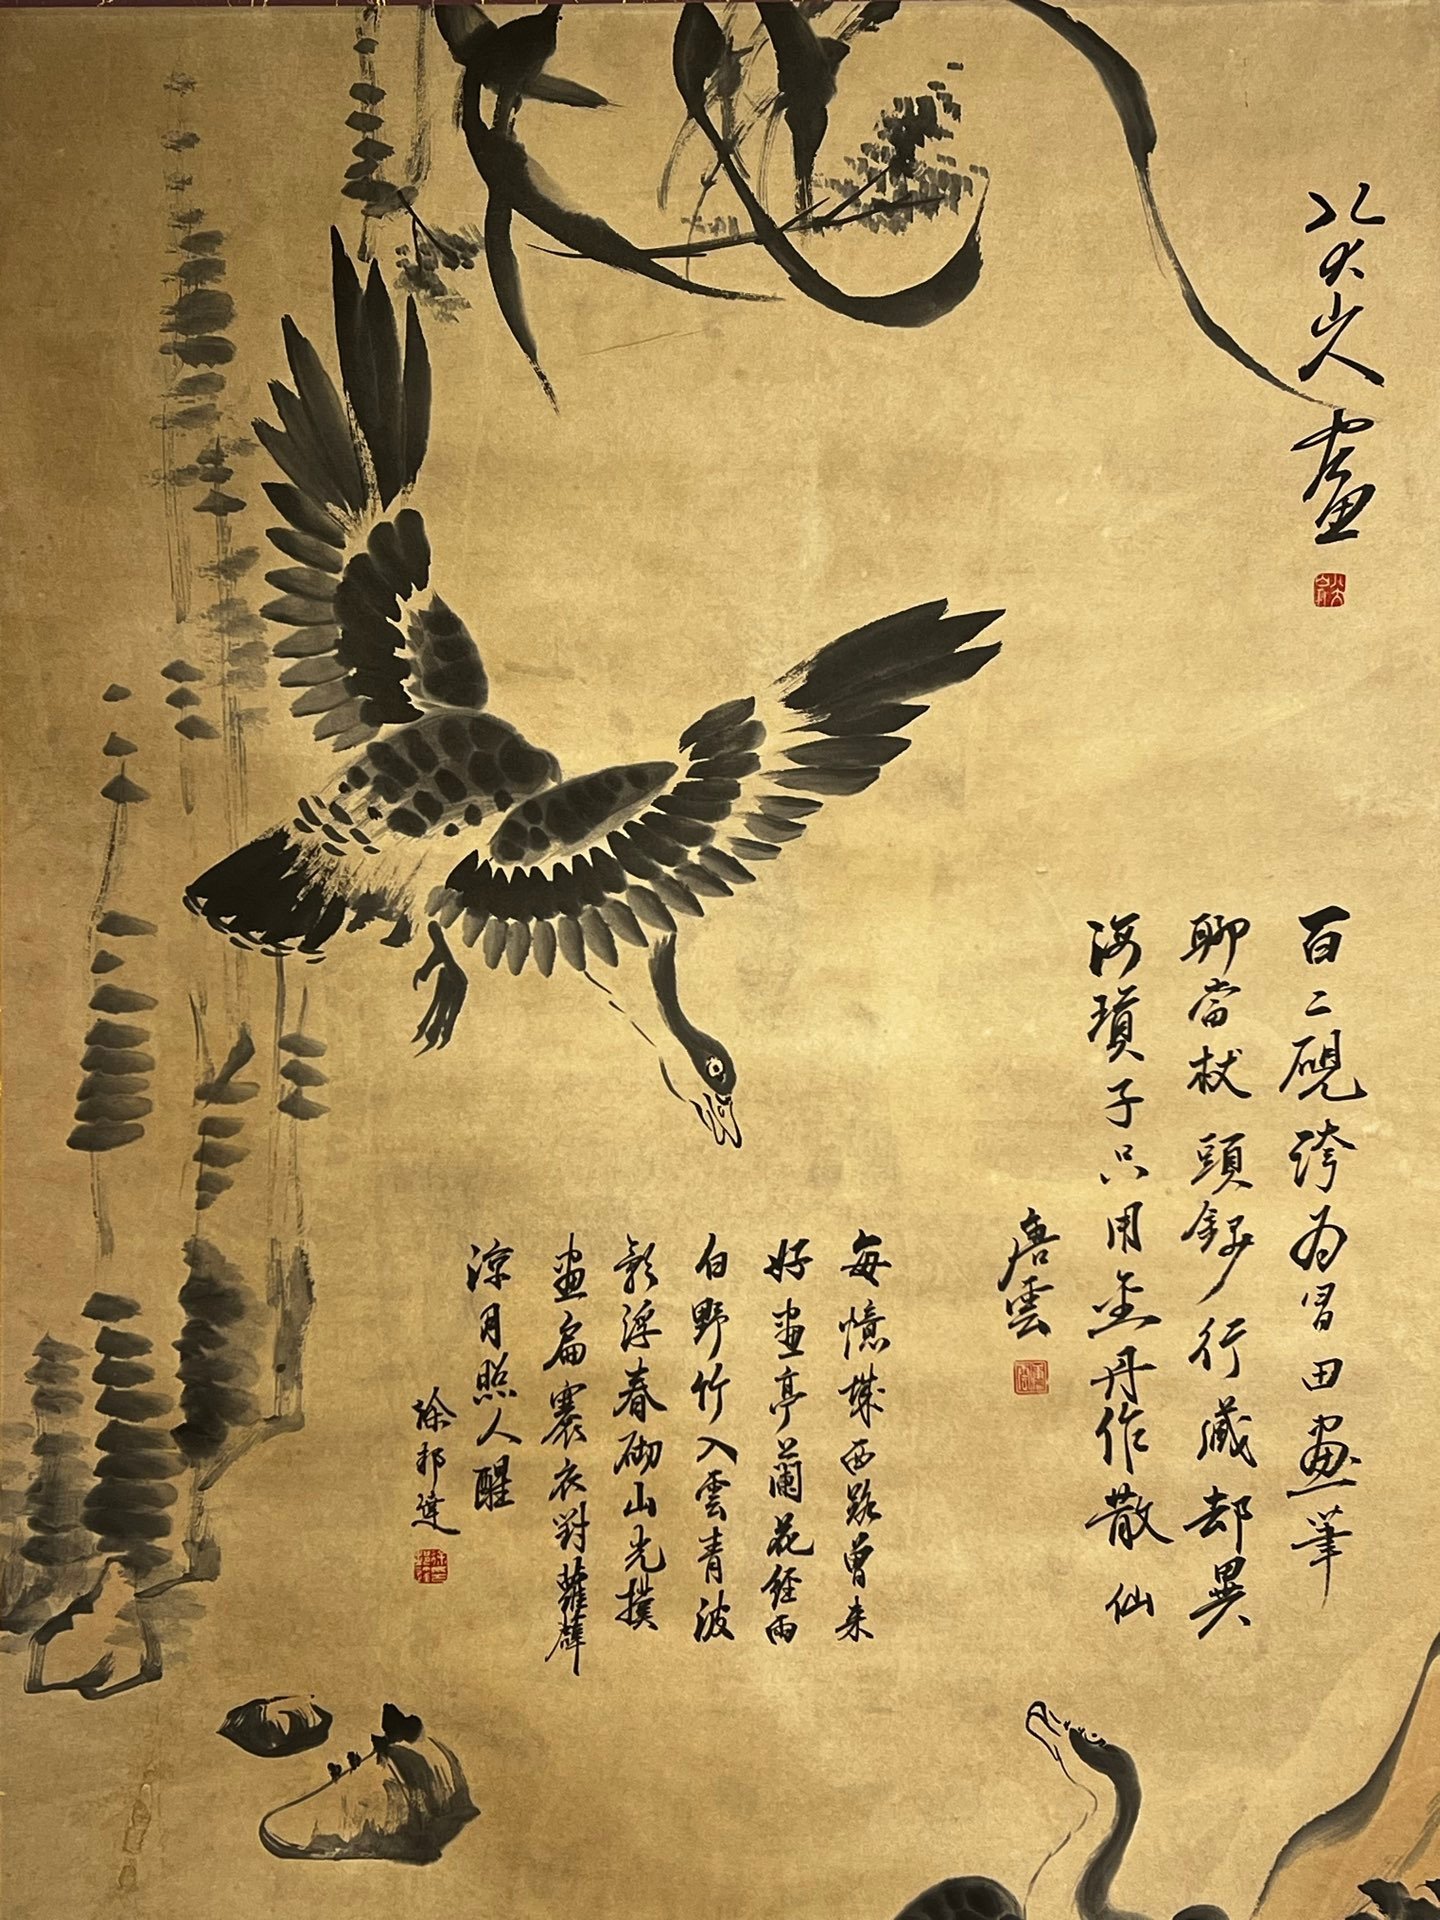 八大山人畫
百二硯誇为冒田畫筆
聊當杖頭錢行藏却異
海瓊子只用金丹作散仙
唐雲
每憶城西路曾来
好畫亭蘭花經雨
白野竹入雲青波
影浮春砌山光撲
畫扁褰衣對蘿薜
涼月照人醒
徐邦達